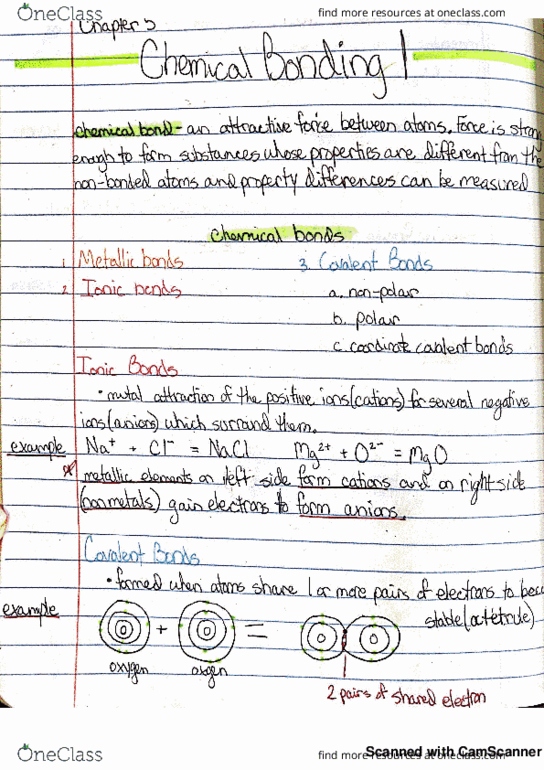 OneClass
find more resources at oneclass.com
Chapter 5
Chemical Bonding 1
chemical bond - an attractive force between atoms. Force is strong
enough to form substances whose properties are different from the
non-bonded atoms and property differences can be measured
Chemical bonds
1. Metallic bonds
3. Covalent Bonds
2. Ionic bonds
a. non-polar
b. polar
c. coordinate covalent bonds
Ionic Bonds
• mutal attraction of the positive ions (cations) for several negative
ions (anions) which surround them.
example Na⁺ + Cl⁻ = NaCl Mg²⁺ + O²⁻ = MgO
* metallic elements on left side form cations and on right side
(nonmetals) gain electrons to form anions.
Covalent Bonds
• formed when atoms share 1 or more pairs of electrons to beco
example
stable (octet rule)
+ =
oxygen
oxgen
2 pairs of shared electron
OneClass
find more resources at oneclass.com
Scanned with CamScanner